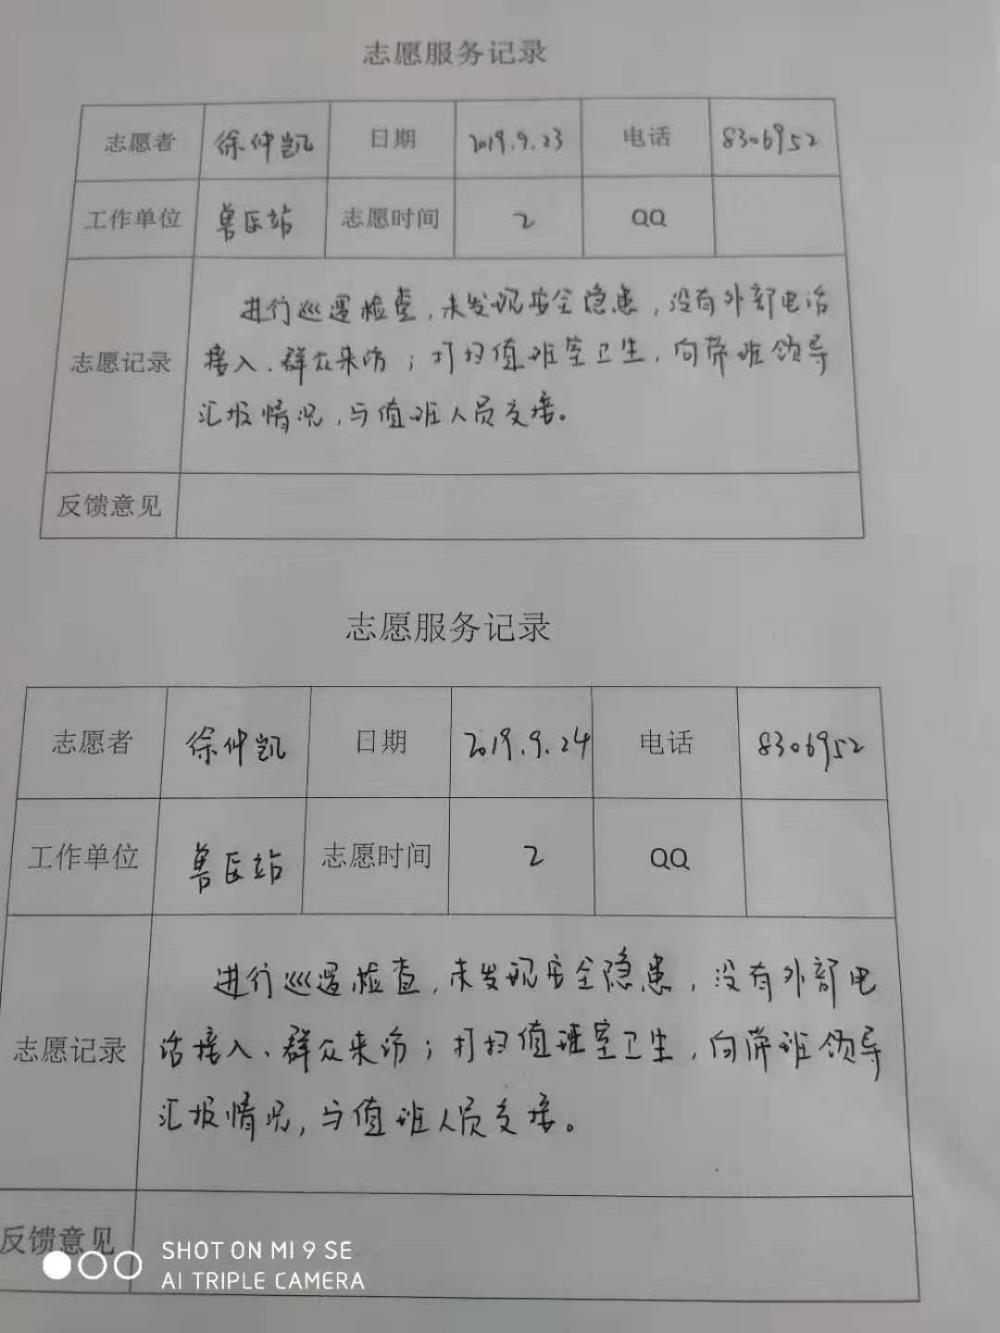 志愿服务记录
志愿者 徐仲凯 日期 2019.9.23 电话 8306952
工作单位 兽医站 志愿时间 2 QQ
志愿记录
进行巡逻检查,未发现安全隐患,没有外部电话
接入、群众来访;打扫值班室卫生,向带班领导
汇报情况,与值班人员交接。
反馈意见
志愿服务记录
志愿者 徐仲凯 日期 2019.9.24 电话 8306952
工作单位 兽医站 志愿时间 2 QQ
志愿记录
进行巡逻检查,未发现安全隐患,没有外部电
话接入、群众来访;打扫值班室卫生,向带班领导
汇报情况,与值班人员交接。
反馈意见
SHOT ON MI 9 SE
AI TRIPLE CAMERA